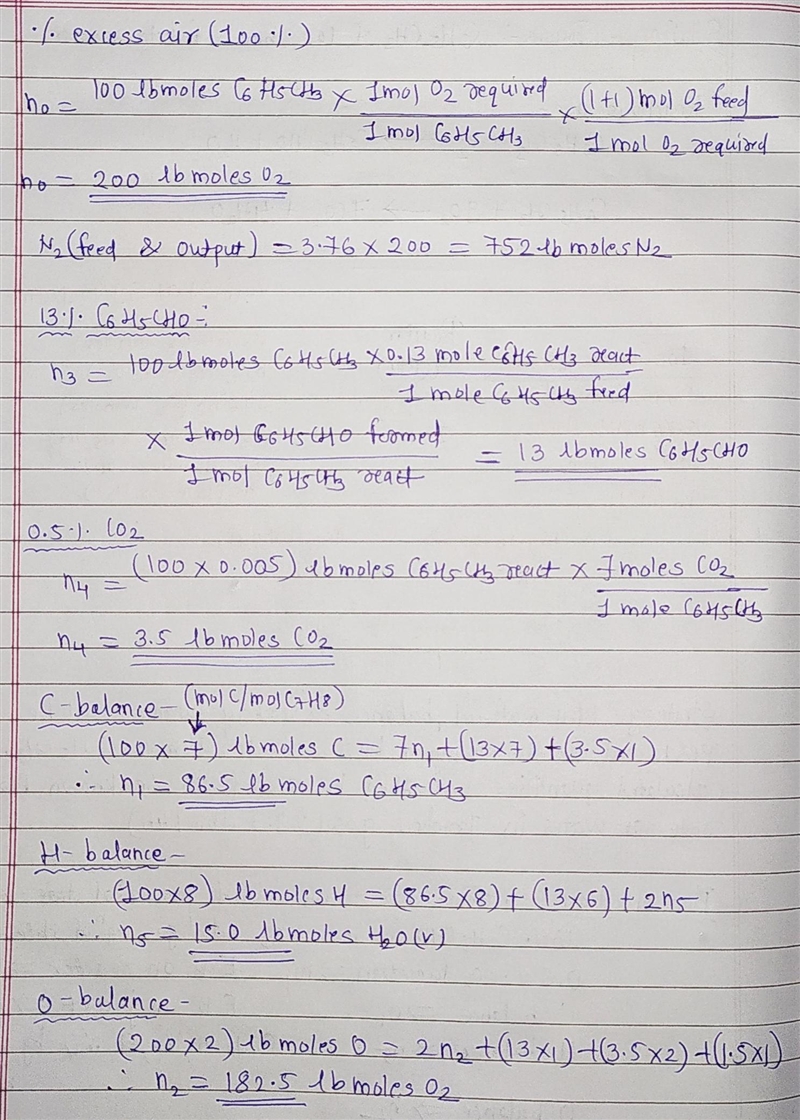 ·/. excess air (100 ·/.)
n0 = 100 lbmoles C6H5CH3 × 1mol O2 required / 1 mol C6H5CH3 × (1+1) mol O2 feed / 1 mol O2 required
n0 = 200 lb moles O2
N2 (feed & output) = 3.76 × 200 = 752 lb moles N2
13 ·/. C6H5CHO -:
n3 = 100 lbmoles C6H5CH3 × 0.13 mole C6H5CH3 react / 1 mole C6H5CH3 feed
× 1 mol C6H5CHO formed / 1 mol C6H5CH3 react = 13 lbmoles C6H5CHO
0.5 ·/. CO2
n4 = (100 × 0.005) lbmoles C6H5CH3 react × 7 moles CO2 / 1 mole C6H5CH3
n4 = 3.5 lbmoles CO2
C-balance - (mol C/mol C7H8)
(100 × 7) lbmoles C = 7n1 + (13×7) + (3.5×1)
∴ n1 = 86.5 lb moles C6H5CH3
H- balance -
(100×8) lbmoles H = (86.5×8) + (13×6) + 2n5
∴ n5 = 15.0 lbmoles H2O(v)
O-balance -
(200×2) lb moles O = 2n2 + (13×1) + (3.5×2) + (1.5×1)
∴ n2 = 182.5 lb moles O2